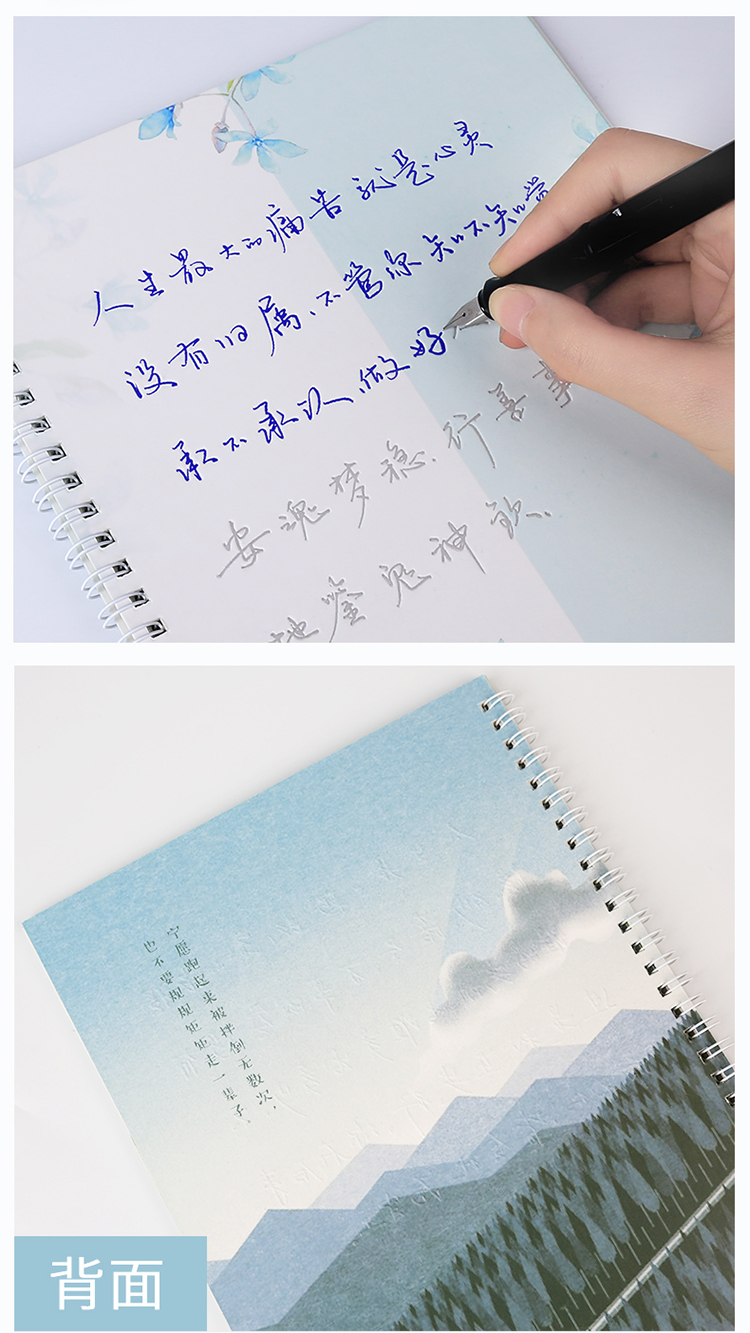 人生最大的痛苦就是心灵
没有归属,不管你知不知觉
承不承认,做好
行善事
安魂梦稳.
神钦.
地鉴鬼
宁愿跑起来被拌倒无数次,
也不要规规矩矩走一辈子、
背面